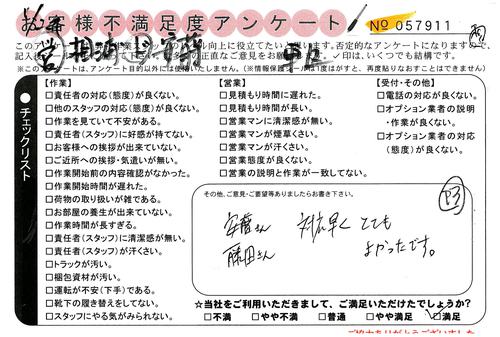 お客様不満足度アンケート
No 057911
このアンケートは
向上に役立てたい
います。否定的なアンケートになりますので、
記入
正直なご意見をお願い
✓印は、いくつでも結構です。
※このアンケートは、アンケート目的以外には使いません。(※情報保護シールは1度はがすと、再度貼りなおすことはできません)
チェックリスト
【作業】
□責任者の対応(態度)が良くない。
□他のスタッフの対応(態度)が良くない。
□作業を見ていて不安がある。
□責任者(スタッフ)に好感が持てない。
□お客様への挨拶が出来ていない。
□ご近所への挨拶・気遣いが無い。
□作業開始前の内容確認がなかった。
□作業開始時間が遅れた。
□荷物の取り扱いが雑である。
□お部屋の養生が出来ていない。
□作業時間が長すぎる。
□責任者(スタッフ)に清潔感が無い。
□責任者(スタッフ)が汗くさい。
□トラックが汚い。
□梱包資材が汚い。
□運転が不安(下手)である。
□靴下の履き替えをしてない。
□スタッフにやる気がみられない。
【営業】
□見積もり時間に遅れた。
□見積もり時間が長い。
□営業マンに清潔感が無い。
□営業マンが煙草くさい。
□営業マンが汗くさい。
□営業態度が良くない。
□営業の説明と作業が一致してない。
【受付・その他】
□電話の対応が良くない。
□オプション業者の説明
・作業が良くない。
□オプション業者の対応
(態度)が良くない。
その他、ご意見・ご要望等ありましたらお書き下さい。
安藤さん 対応早く とても
藤田さん よかったです。
☆当社をご利用いただきまして、ご満足いただけたでしょうか?
□不満 □やや不満 □普通 □やや満足 ☑満足
ご協力ありがとうございました